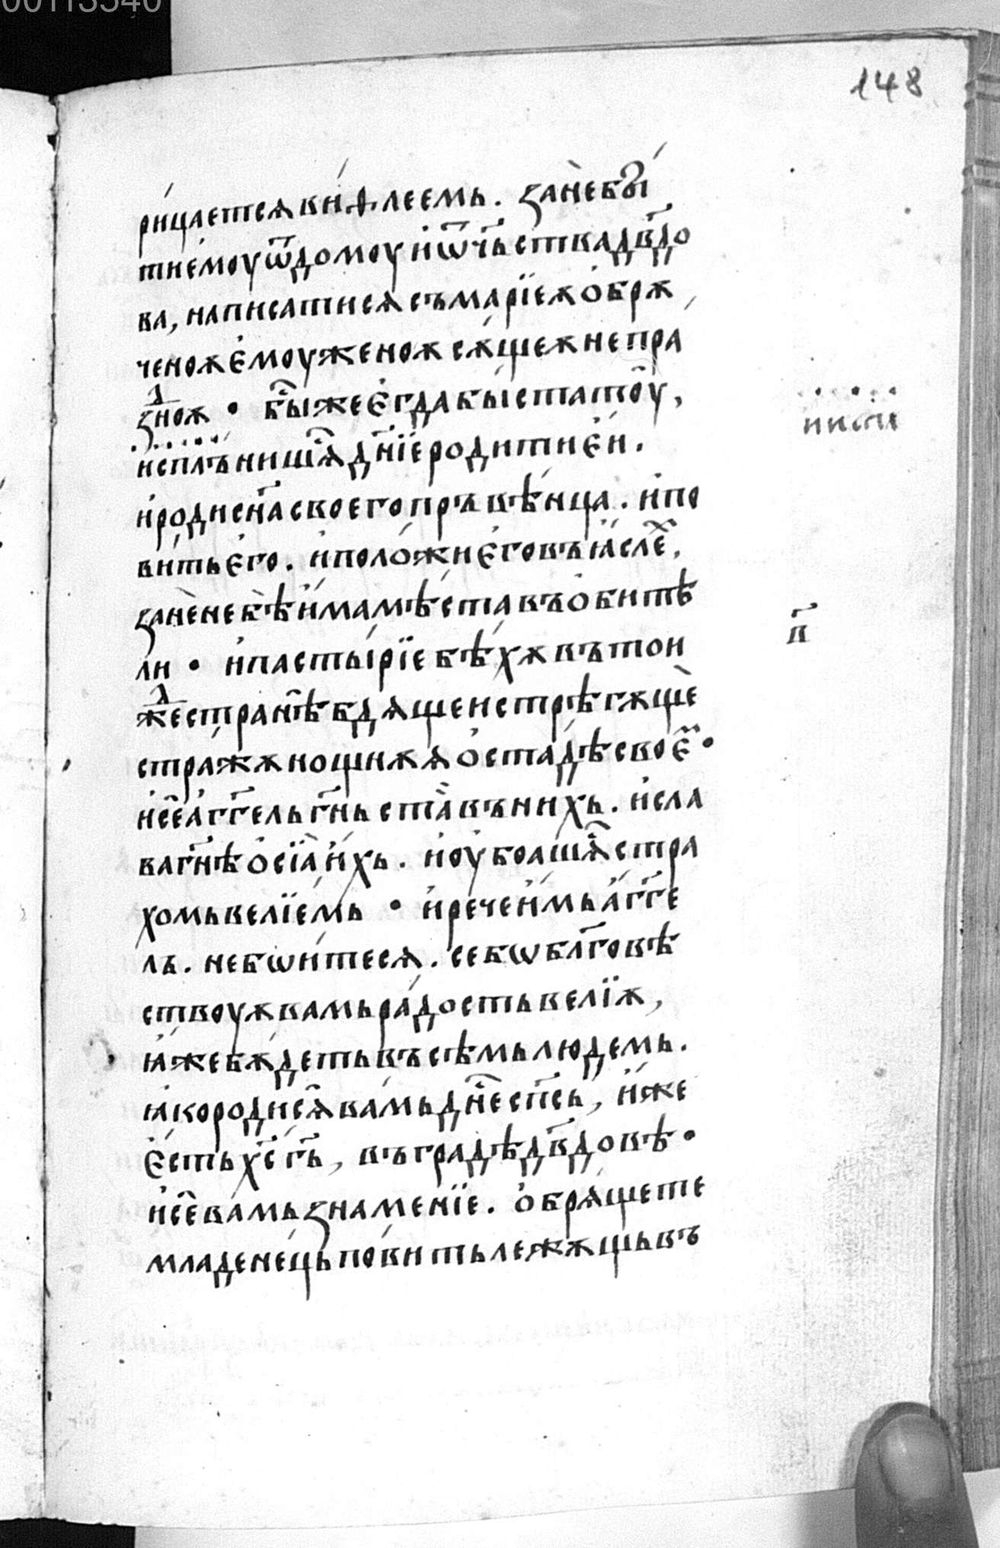 00113540
148
рицаетсѧ виѳлеемь. занебы
тиемоу ѿдомоу иѿчьства двдо
ва, написатисѧ съмарїеѫ обрѫ
ченоѫ емоу женоѫ сѫщеѫ непра
зноѫ • бы же егда быста тоу,
исплънишѧ дн҃їе родити еи.
ироди сн҃а своего пръвѣнца. ипо
вить его. иположи его въ ꙗслѣ,
зане не бѣ има мѣста въ обитѣ
ли • ипастырїе бѣхѫ въ тои
же странѣ бдѧще и стрѣгѫще
стражѫ нощнѫѧ о стадѣ своеⷨ •
исе аг҃гель гн҃ь ста въ нихь. исла
ва гн҃ѣ осїа ихь. иоубоашѧ стра
хомь велїемь • ирече имь аг҃ге
ль. не бѡитесѧ. се бѡ бл҃говѣ
ствоуѫ вамь радость велїѫ,
ꙗже бѫдеть въсѣмь людемь.
ꙗко родисѧ вамь дн҃е сп҃сь, иже
есть х҃с г҃ь, въ градѣ дв҃довѣ •
исе вамь знаменїе. обрѧщете
младенець повить лежѫщь въ
в҃